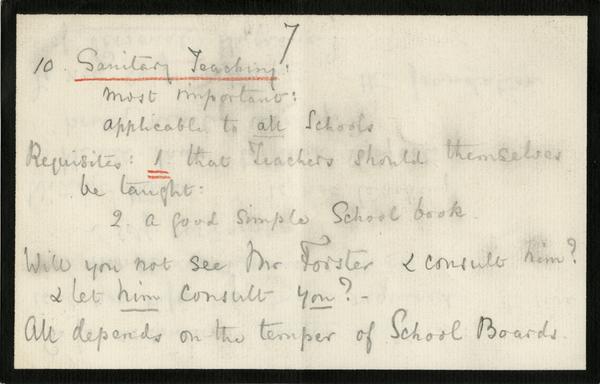 7
10. Sanitary Teaching:
most important:
applicable to all Schools
Requisites: 1. that Teachers should themselves
be taught:
2. a good simple School book.
Will you not see Mr Forster & consult him?
& let him consult you? -
All depends on the temper of School Boards.